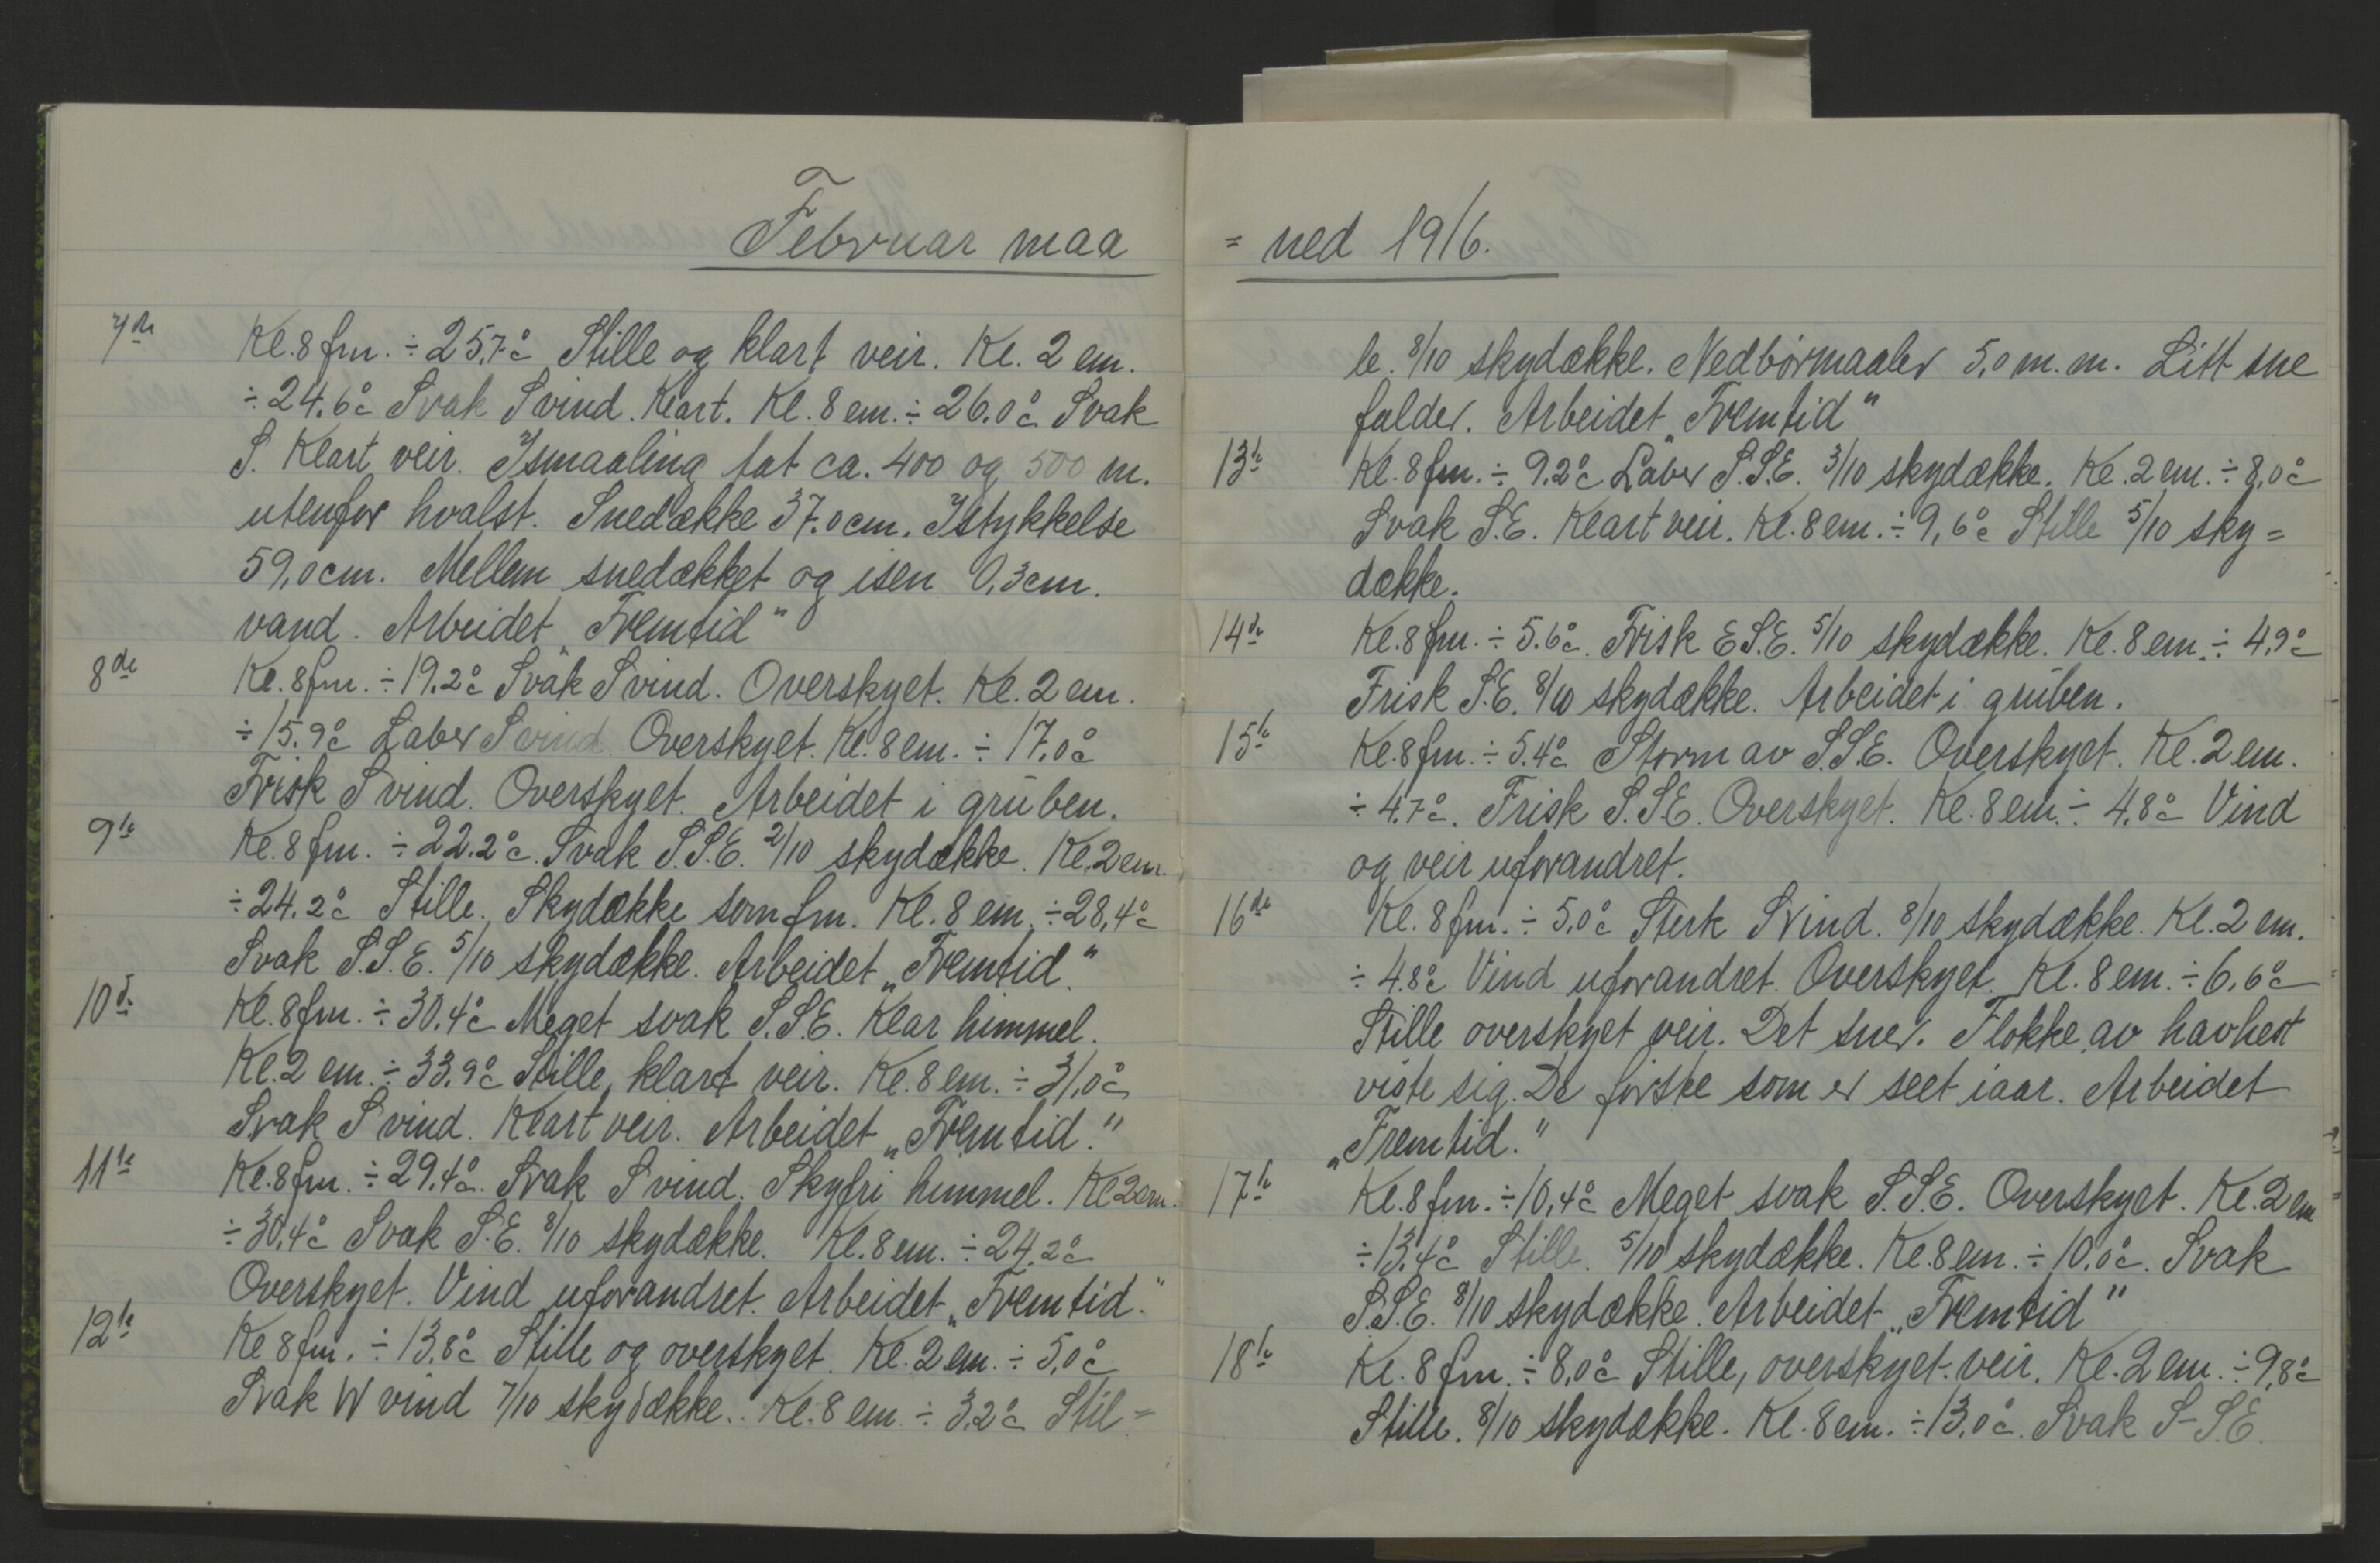 Februar maa
7de Kl. 8 fm. ÷ 25,7°c Stille og klart veir. Kl. 2 em.
÷ 24,6°c Svak S vind. Klart. Kl. 8 em. ÷ 26.0°c Svak
S. Klart veir. Ismaaling tat ca. 400 og 500 m.
utenfor hvalst. Snedække 37.0 cm. Istykkelse
59,0 cm. Mellem snedækket og isen 0,3 cm.
vand. Arbeidet „Fremtid"
8de Kl. 8 fm. ÷ 19.2°c Svak S vind. Overskyet. Kl. 2 em.
÷ 15.9°c Laber S vind Overskyet. Kl. 8 em. ÷ 17.0°c
Frisk S vind. Overskyet. Arbeidet i gruben.
9de Kl. 8 fm. ÷ 22.2°c. Svak S.S.E. 2/10 skydække. Kl. 2 em.
÷ 24.2°c Stille. Skydække som fm. Kl. 8 em. ÷ 28,4°c
Svak S.S.E. 5/10 skydække. Arbeidet „Fremtid."
10de Kl. 8 fm. ÷ 30.4°c Meget svak S.S.E. Klar himmel.
Kl. 2 em. ÷ 33.9°c Stille, klart veir. Kl. 8 em. ÷ 31,0°c
Svak S vind. Klart veir. Arbeidet „Fremtid."
11te Kl. 8 fm. ÷ 29.4°c. Svak S vind. Skyfri himmel. Kl 2 em.
÷ 30,4°c Svak S.E. 8/10 skydække. Kl. 8 em. ÷ 24.2°c
Overskyet. Vind uforandret. Arbeidet „Fremtid."
12te Kl 8 fm. ÷ 13,8°c Stille og overskyet. Kl. 2 em. ÷ 5,0°c
Svak W vind 7/10 skydække. Kl. 8 em ÷ 3.2°c Stil=
= ned 1916.
le. 8/10 skydække. Nedbørmaaler 5,0 m.m. Litt sne
falder. Arbeidet „Fremtid"
13te Kl. 8 fm. ÷ 9.2°c Laber S.S.E. 3/10 skydække. Kl. 2 em. ÷ 8,0°c
Svak S.E. Klart veir. Kl. 8 em. ÷ 9,6°c Stille 5/10 sky=
dække.
14de Kl. 8 fm. ÷ 5.6°c. Frisk E S.E. 5/10 skydække. Kl. 8 em. ÷ 4,9°c
Frisk S.E. 8/10 skydække. Arbeidet i gruben.
15te Kl. 8 fm. ÷ 5.4°c Storm av S.S.E. Overskyet. Kl. 2 em.
÷ 4,7°c. Frisk S.S.E. Overskyet. Kl. 8 em. ÷ 4,8°c Vind
og veir uforandret.
16de Kl. 8 fm. ÷ 5,0°c Sterk S vind. 8/10 skydække. Kl. 2 em.
÷ 4.8°c Vind uforandret. Overskyet. Kl. 8 em. ÷ 6,6°c
Stille overskyet veir. Det sner. Flokke av havhest
viste sig. De første som er seet iaar. Arbeidet
„Fremtid."
17te Kl. 8 fm. ÷ 10,4°c Meget svak S.S.E. Overskyet. Kl. 2 em
÷ 13.4°c Stille. 5/10 skydække. Kl. 8 em. ÷ 10.0°c. Svak
S.S.E. 8/10 skydække. Arbeidet „Fremtid"
18te Kl. 8 fm. ÷ 8,0°c Stille, overskyet veir. Kl. 2 em. ÷ 9,8°c
Stille. 8/10 skydække. Kl. 8 em. ÷ 13,0°c. Svak S-S.E.